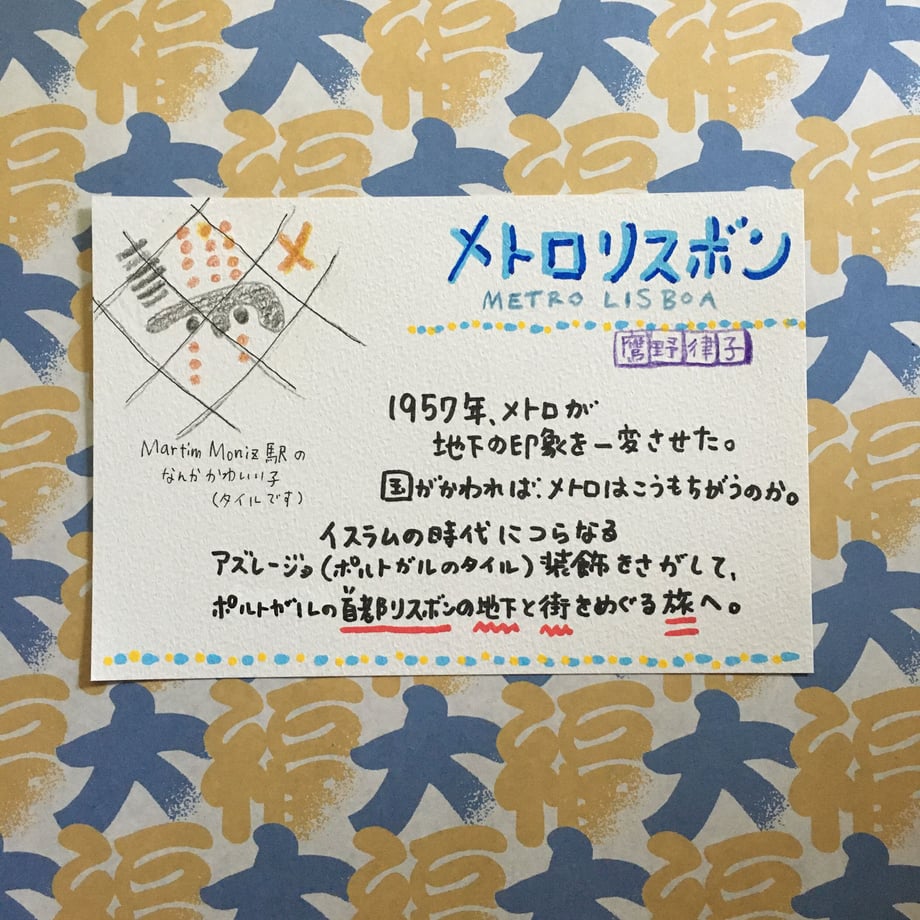 メトロリスボン
METRO LISBOA
鷹野律子
1957年、メトロが
地下の印象を一変させた。
国がかわれば、メトロはこうもちがうのか。
イスラムの時代につらなる
アズレージョ(ポルトガルのタイル)装飾をさがして、
ポルトガルの首都リスボンの地下と街をめぐる旅へ。
Martim Moniz駅の
なんかかわいい子
(タイルです)
大福